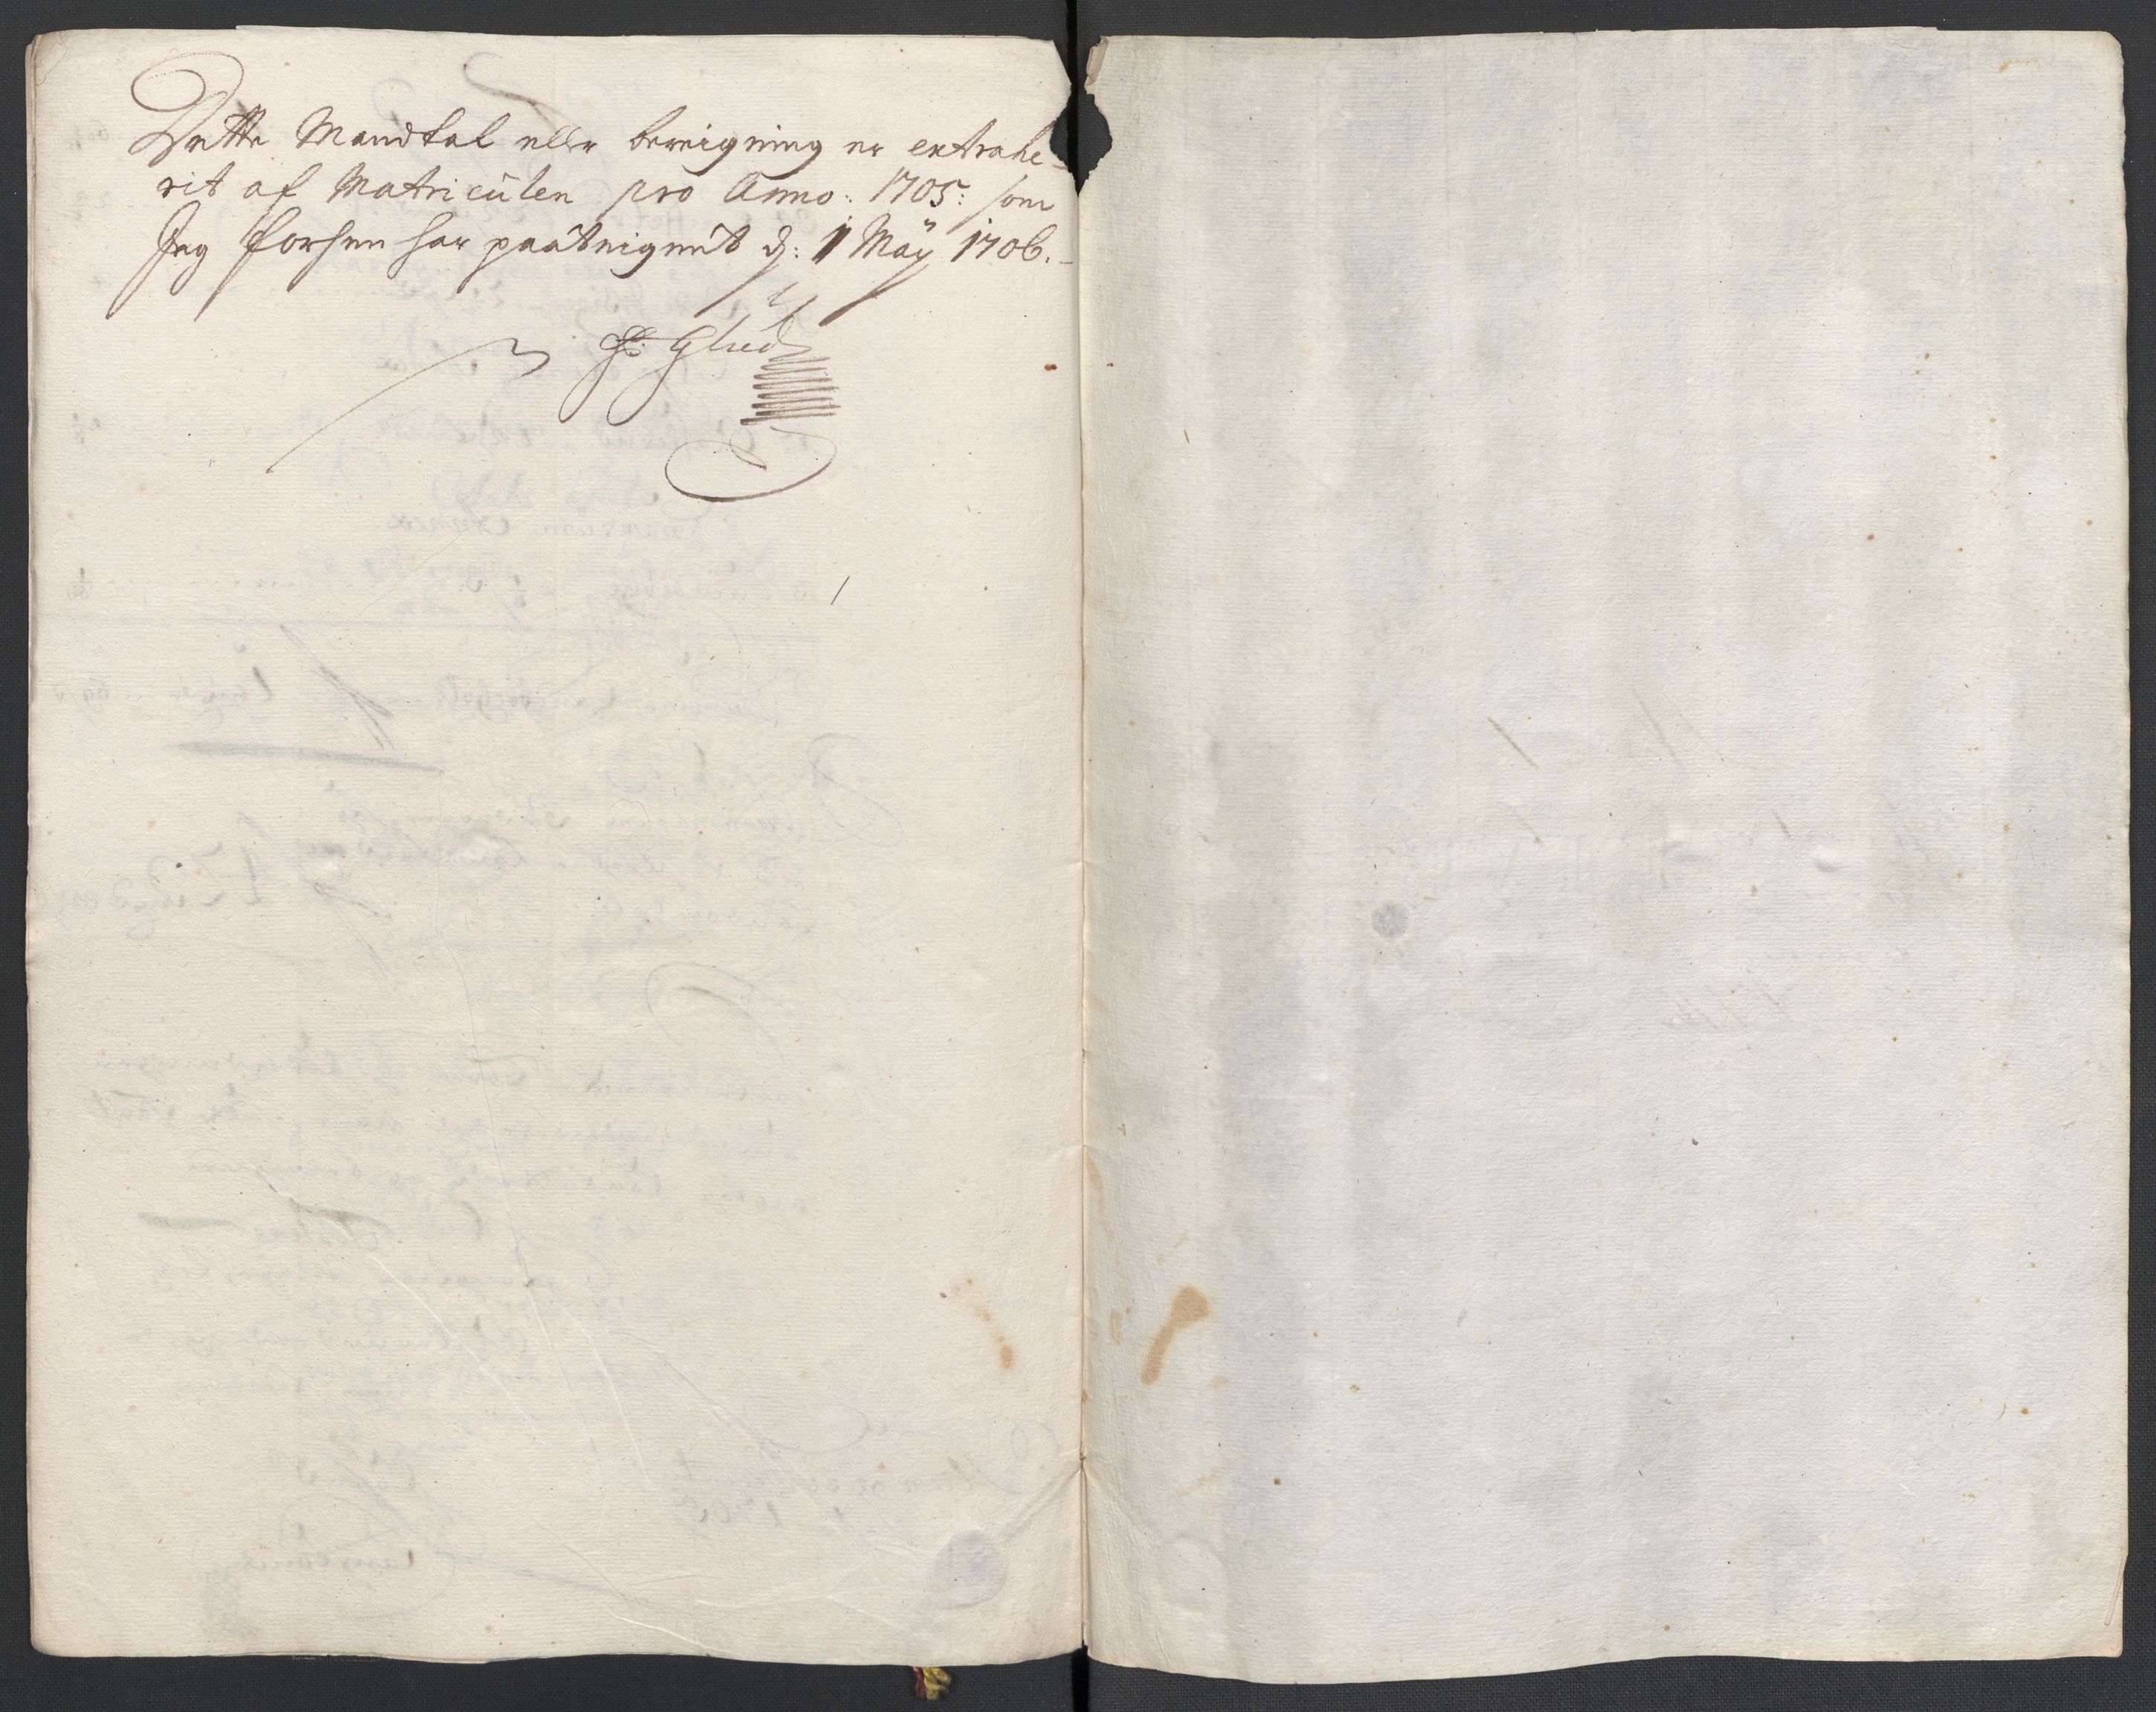 Dette Mandtal eller bereigning er extrahe-
rit af Matriculen pro Anno: 1705: som
Jeg forhen har paateignet d: 1 Maÿ 1706.
Glud